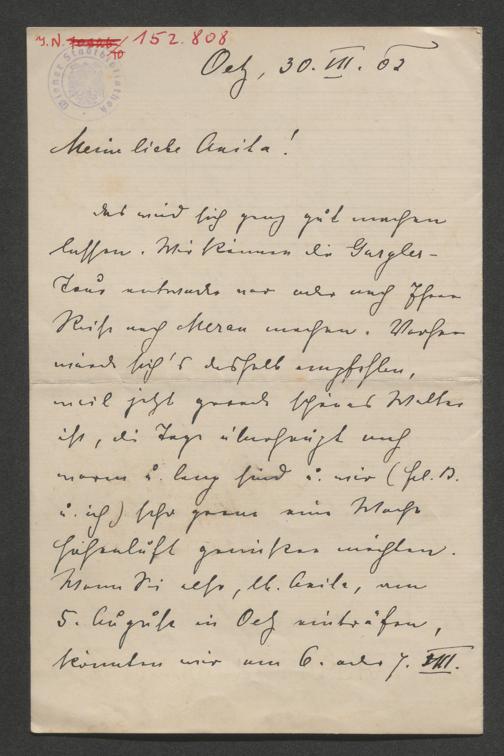 J. N. 152.808
Wiener Stadtbibliothek
Oetz, 30. VII. 02
Meine liebe Anita!
das wird sich ganz gut machen
lassen. Wir können die Gurgler-
Tour entweder vor oder nach Ihrer
Reise nach Meran machen. Vorher
würde sich's deshalb empfehlen,
weil jetzt gerade schönes Wetter
ist, die Tage überhaupt noch
warm u. lang sind u. wir (Frl. B.
u. ich) sehr gerne eine Woche
Höhenluft genießen möchten.
Wenn Sie also, lb. Anita, am
5. August in Oetz einträfen,
könnten wir am 6. oder 7. VIII.